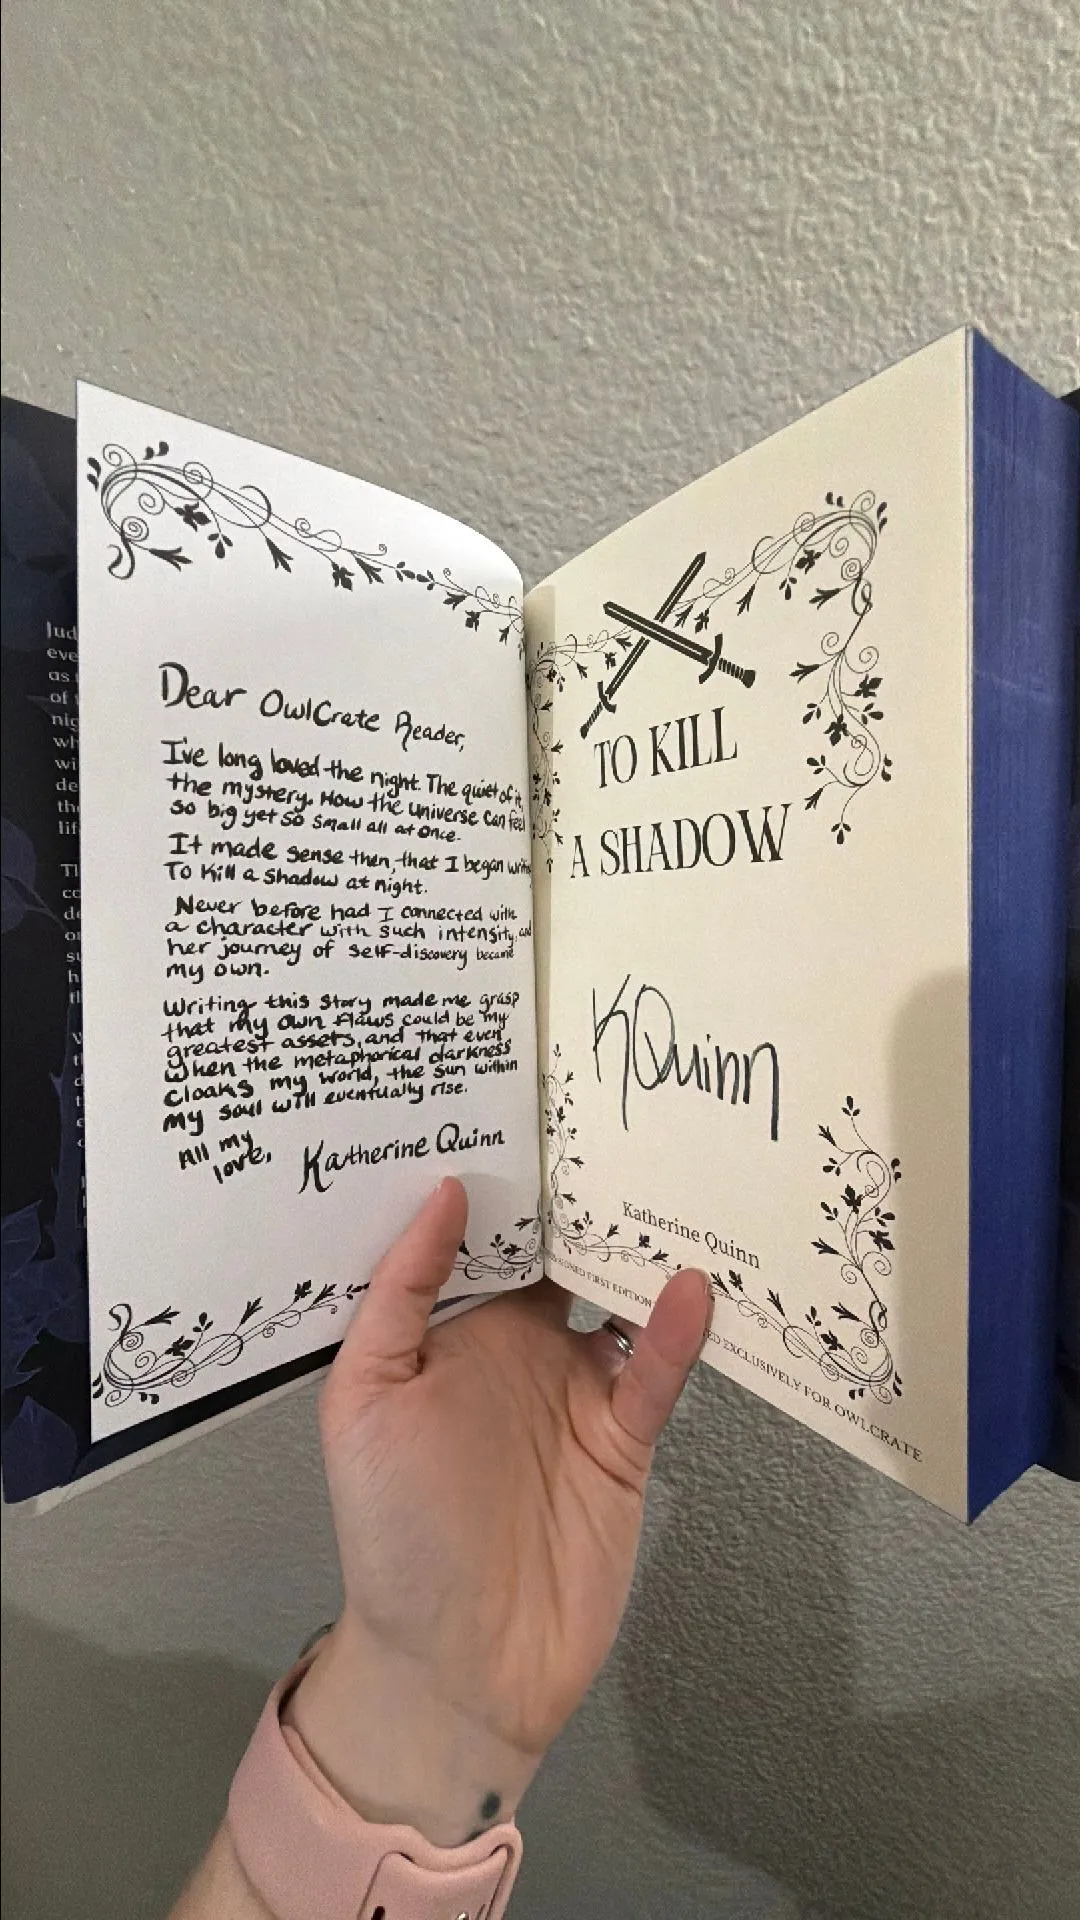 Jud
eve
as
of
nig
wh
wi
de
the
lif
Dear OwlCrate Reader,
I've long loved the night. The quiet of it,
the mystery. How the universe can feel
so big yet so small all at once.
It made sense then, that I began
To Kill a Shadow at night.
Never before had I connected with
a character with such intensity, and
her journey of self-discovery became
my own.
Writing this story made me grasp
that my own flaws could be my
greatest assets, and that even
when the metaphorical darkness
cloaks my world, the sun within
my soul will eventually rise.
All my
love,
Katherine Quinn
TO KILL
A SHADOW
KQuinn
Katherine Quinn
SIGNED FIRST EDITION
EXCLUSIVELY FOR OWLCRATE